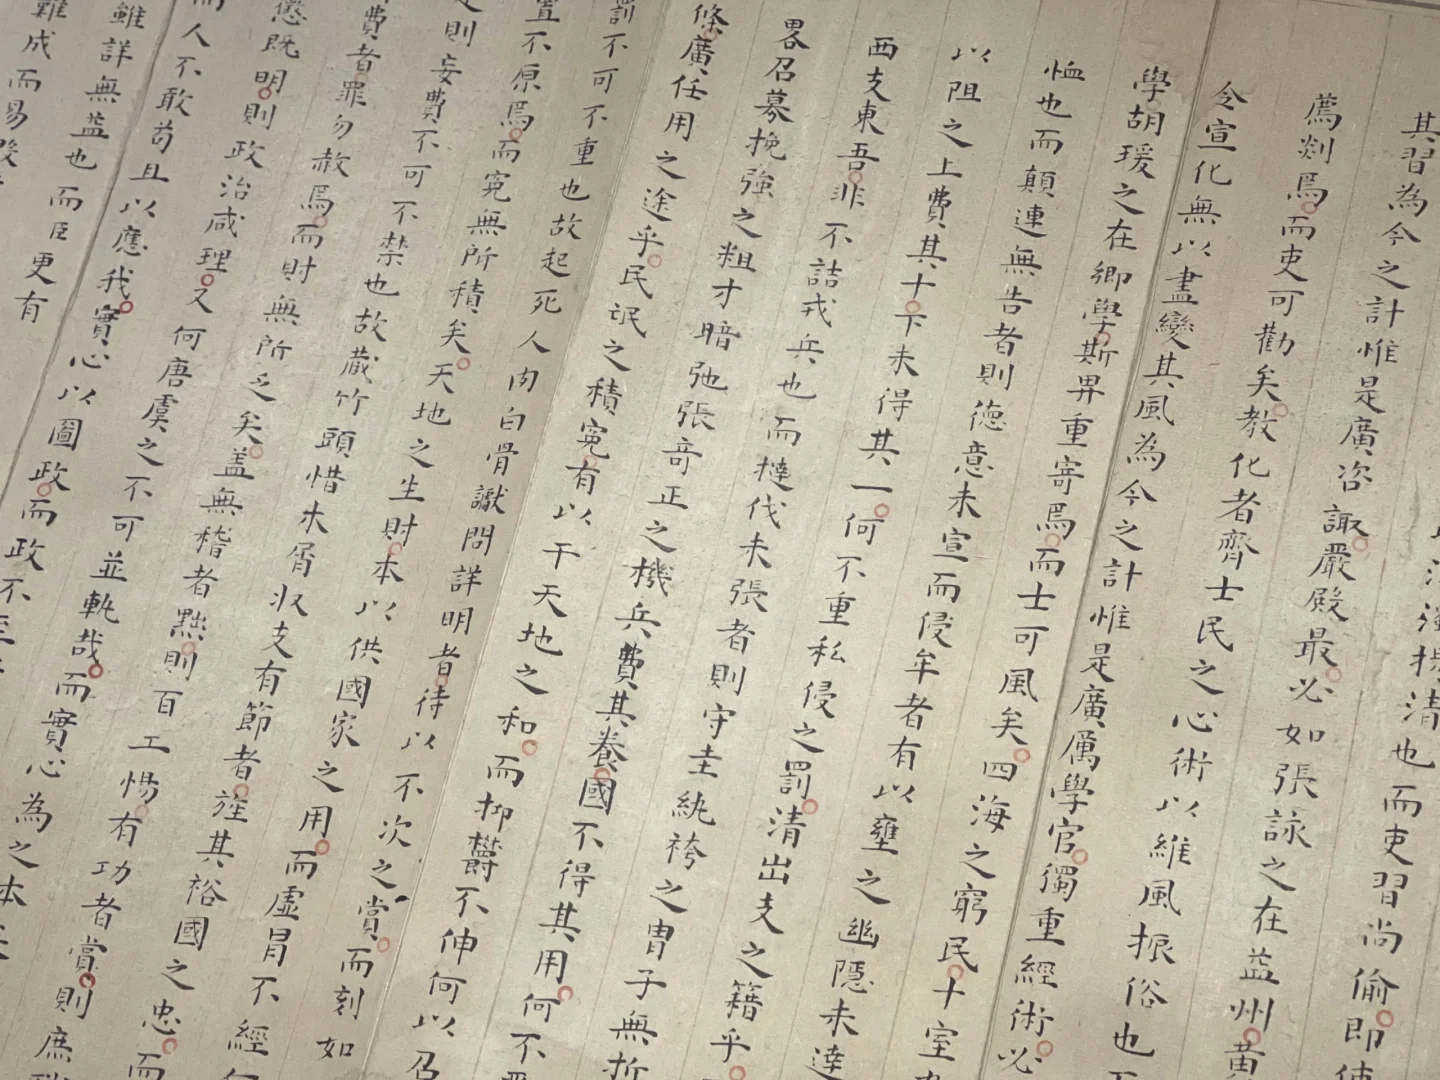 其習為今之計惟是廣咨諏嚴殿最必如張詠之在益州黃
薦剡焉而吏可勸矣教化者齊士民之心術以維風振俗也
令宣化無以盡變其風為今之計惟是廣厲學官獨重經術必
學胡瑗之在鄉學斯畀重寄焉而士可風矣四海之窮民十室
恤也而顛連無告者則德意未宣而侵牟者有以壅之幽隱未達
以阻之上費其十下未得其一何不重私侵之罰清出支之籍乎
西支東吾非不詰戎兵也而撻伐未張者則守圭紈袴之冑子無折
畧召募挽強之粗才暗弛張竒正之機兵費其養國不得其用何不
條廣任用之途乎民氓之積寃有以干天地之和而抑欝不伸何以召
罰不可不重也故起死人肉白骨讞問詳明者待以不次之賞而刻如
置不原焉而寃無所積矣天地之生財本以供國家之用而虛冐不經
則妄費不可不禁也故蔵竹頭惜木屑收支有節者旌其裕國之忠而
費者罪勿赦焉而財無所乏矣盖無稽者黜則百工惕有功者賞則庶
懲既明則政治咸理又何唐虞之不可並軌哉而實心為之本
人不敢苟且以應我實心以圖政而政不至
雖詳無益也而臣更有
難成而易
也而吏習尚偷即使